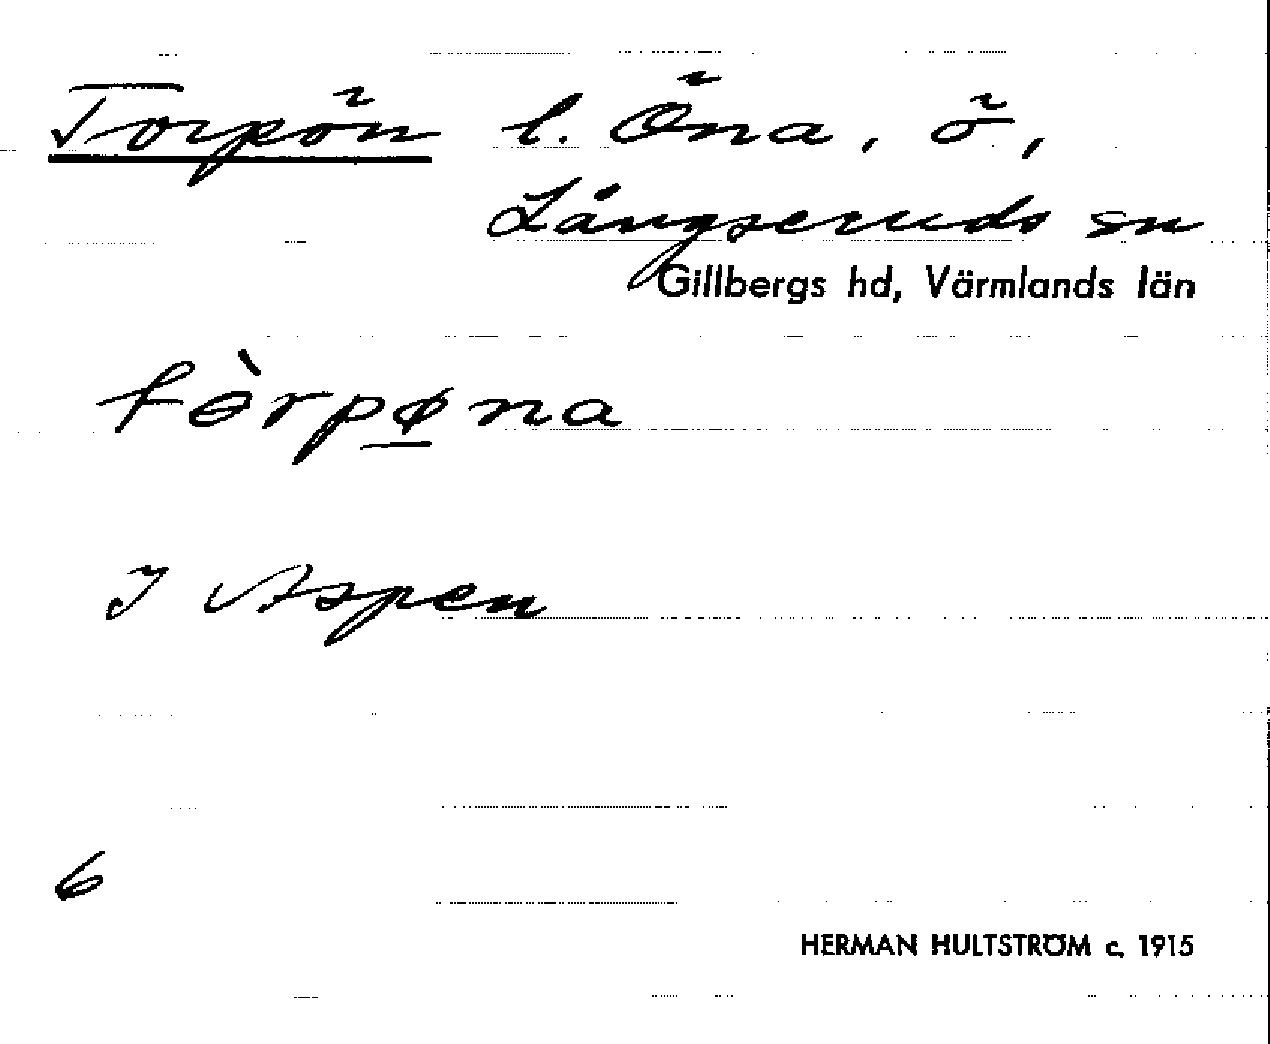 Torpön l. Öna, ö,
Långseruds sn
Gillbergs hd, Värmlands län
tòrpøna
I Aspen
6
HERMAN HULTSTRÖM c. 1915